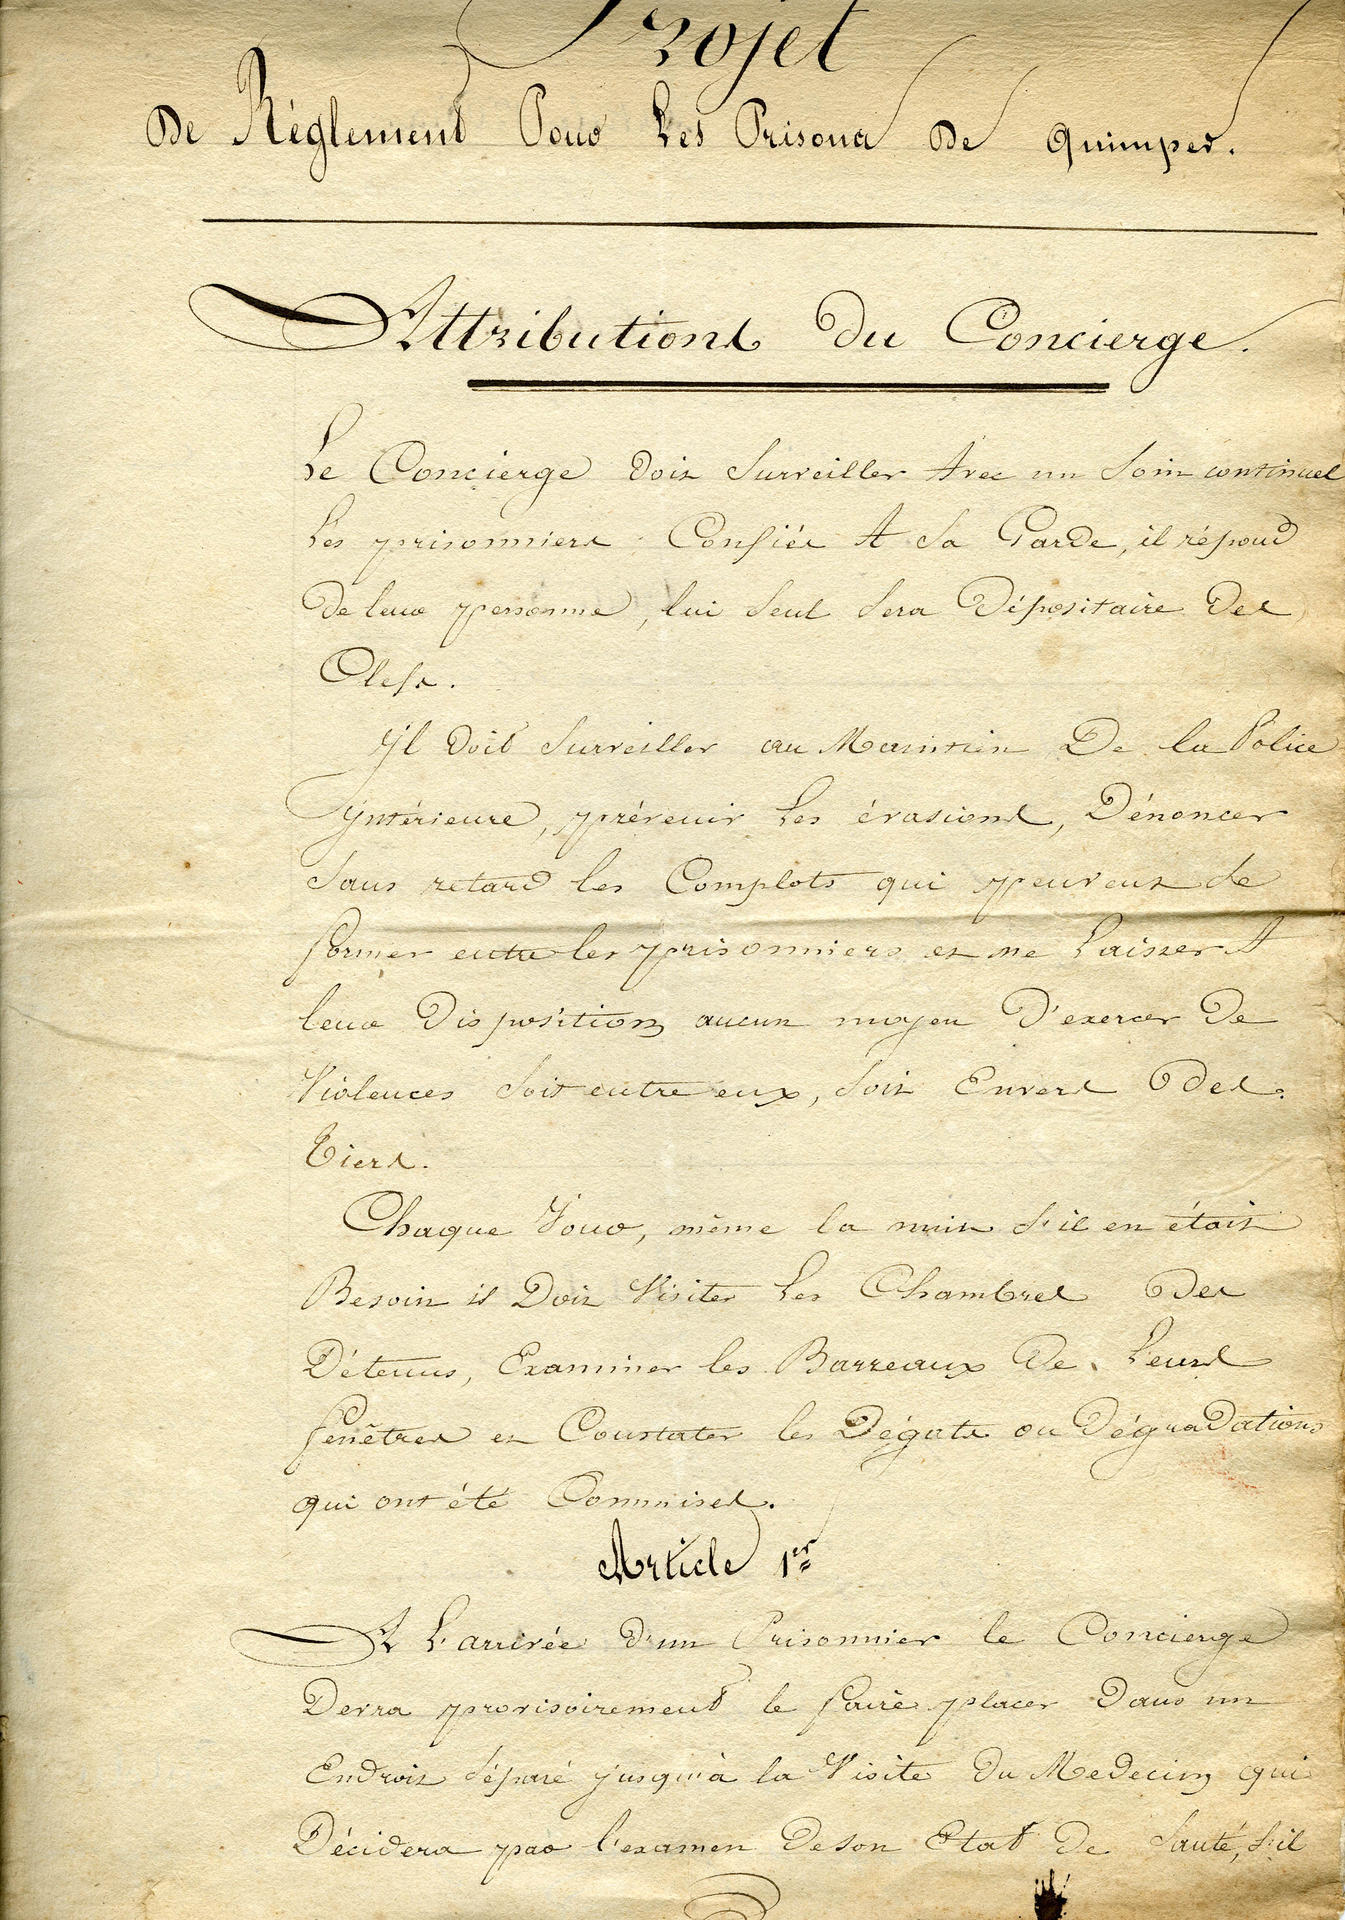 Projet
De Réglement Pour Les Prisons De Quimper.
Attributions Du Concierge.
Le Concierge doit Surveiller Avec un Soin continuel
Les prisonniers Confiés A Sa Garde, il répond
De leur personne, lui Seul Sera Dépositaire Des
Clefs.
Y'l Doit Surveiller au Maintien De la Police
Yntérieure, prévenir Les évasions, Dénoncer
Sans retard les Complots qui peuvent Se
former entre les prisonniers et ne Laisser A
leur Disposition aucun moyen D'exercer De
Violences Soit entre eux, Soit Envers Des
Tiers.
Chaque Jour, même la nuit S'il en était
Besoin il Doit Visiter Les Chambres Des
Détenus, Examiner les Barreaux De Leurs
fenêtres et Constater les Dégats ou Dégradations
qui ont été Commises.
Article 1er
A L'arrivée d'un Prisonnier le Concierge
Devra provisoirement le faire placer Dans un
Endroit Séparé jusqu'à la Visite Du Medecin qui
Décidera par l'examen De son Etat De Santé, S'il